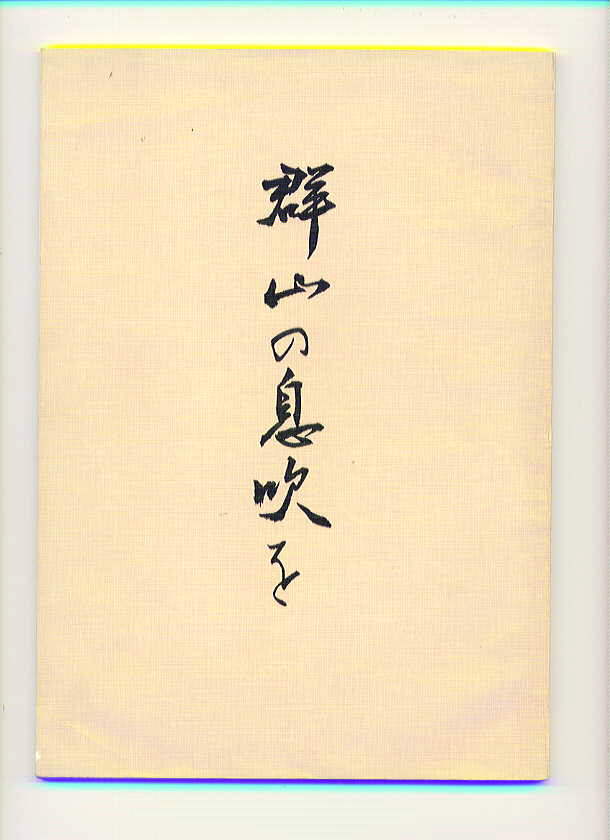 群山の息吹を